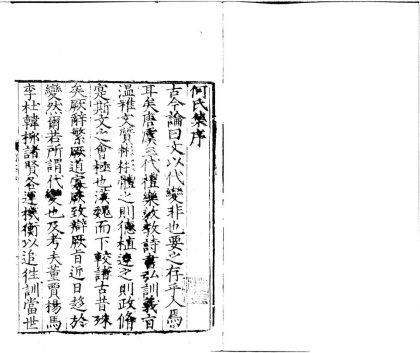 何氏集序
古今論曰文以代變非也要之存乎人焉
耳矣唐虞三代禮樂敷教詩書弘訓義旨
溫雅文質彬彬體之則德植達之則政脩
寔斯文之會極也漢魏而下較諸古昔殊
矣厥辭繁厥道寡厥致辯厥旨近日趋於
變然爾若所謂代變也及考夫董賈楊馬
李杜韓柳諸賢各運機衡以追徃訓當世